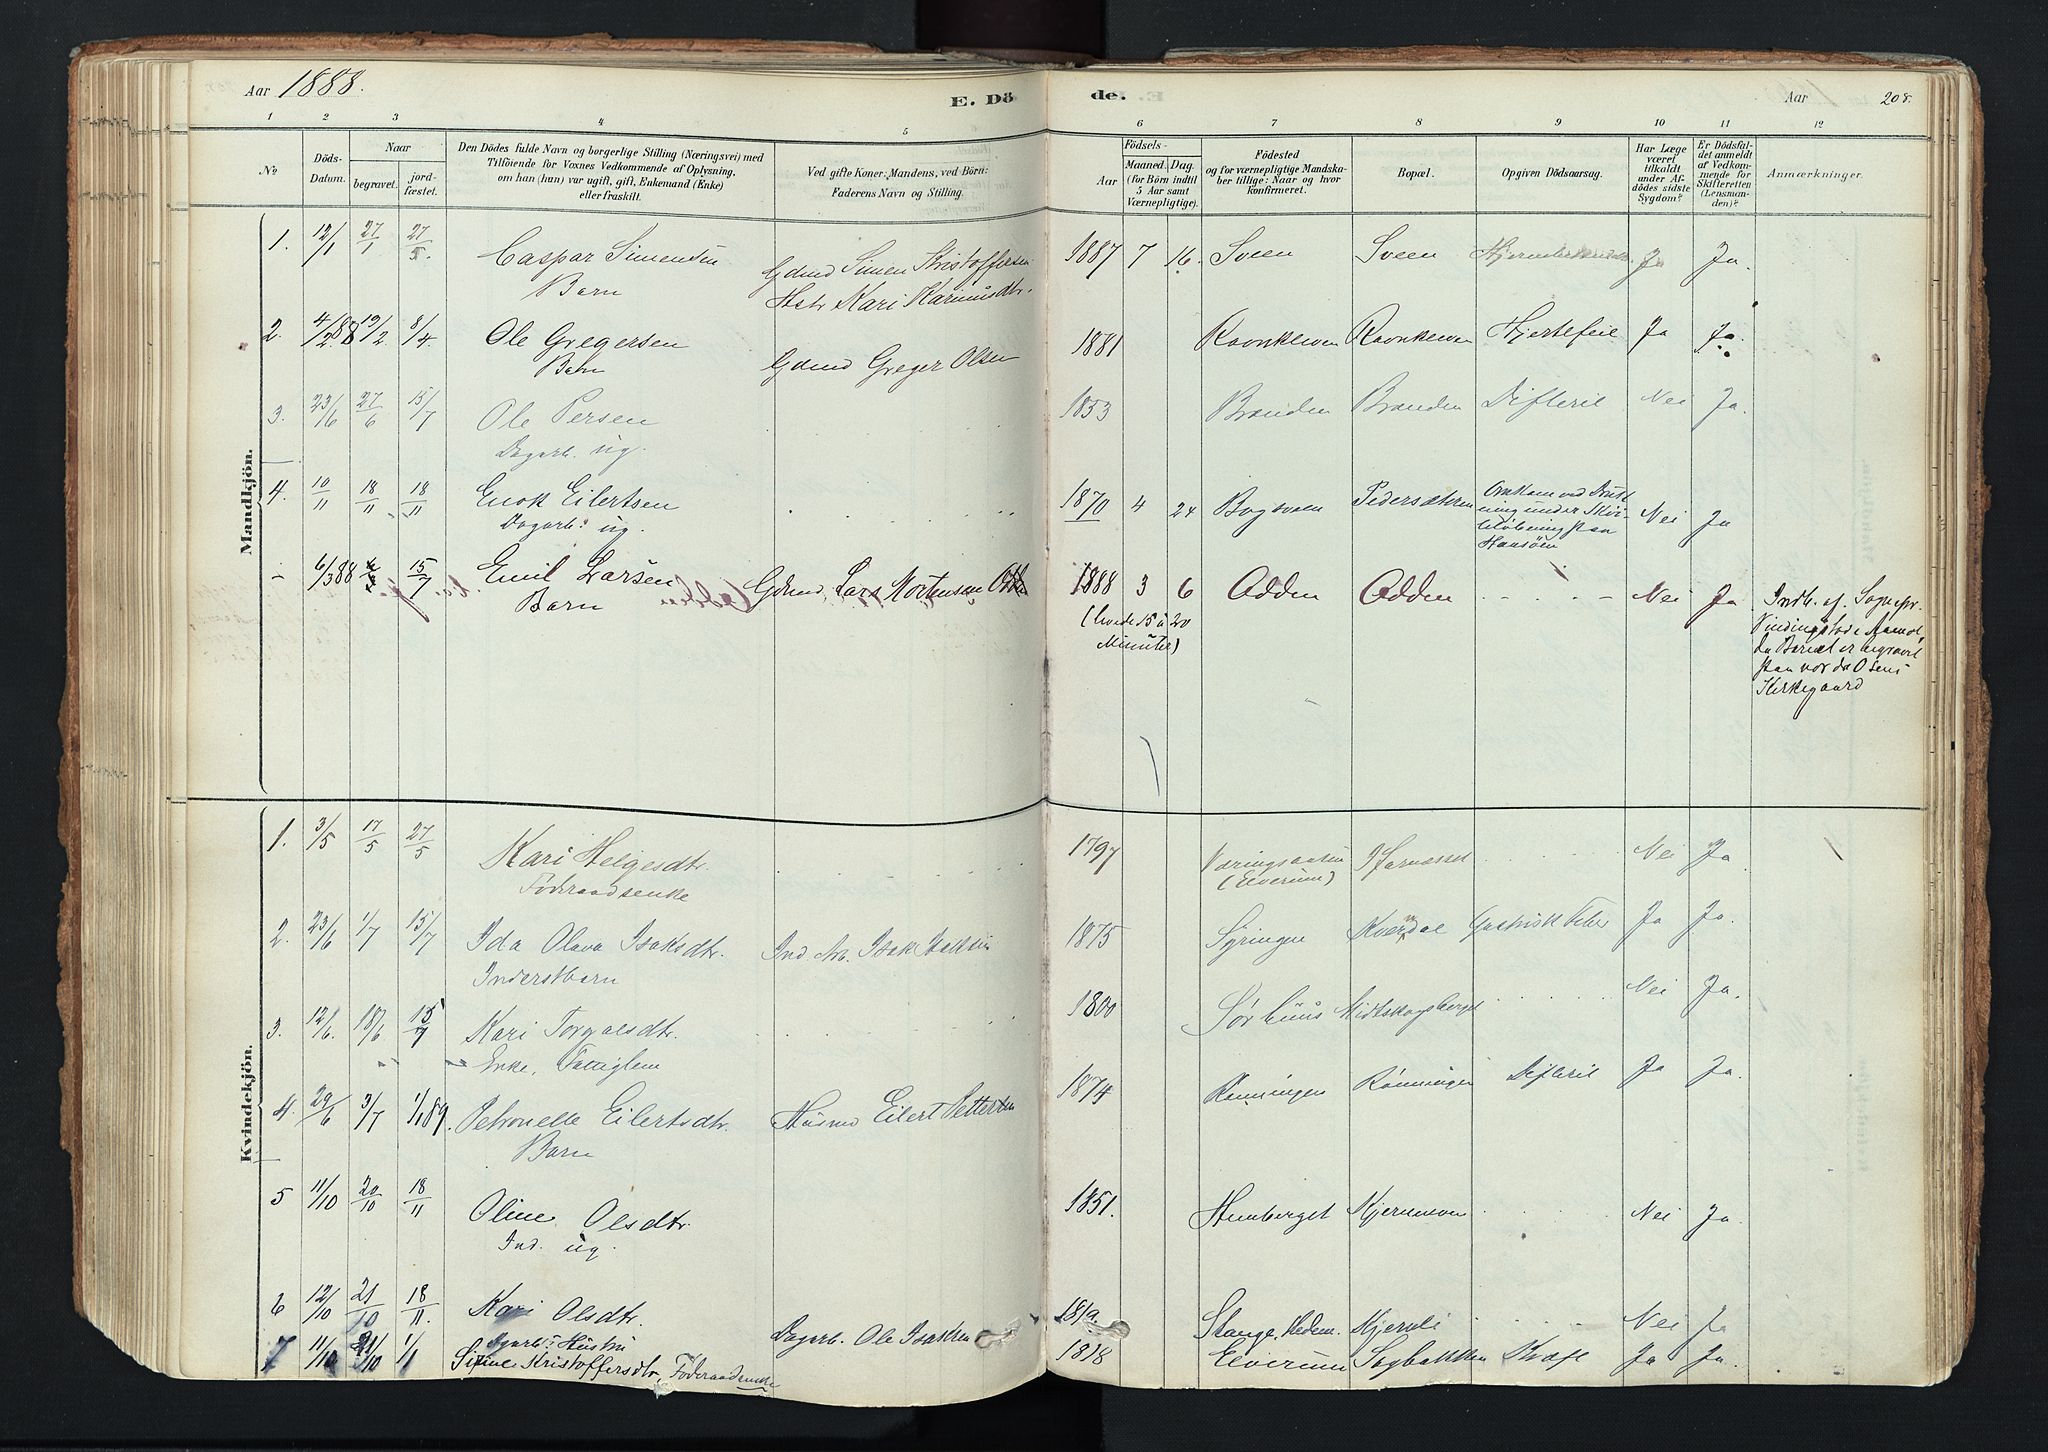 Aar 1888.
E. Dö
de.
Aar
208.
1 2 3 4 5 6 7 8 9 10 11 12
No
Döds-Datum.
Naar
begravet.
jord-fæstet.
Den Dödes fulde Navn og borgerlige Stilling (Næringsvei) med
Tilföiende for Voxnes Vedkommende af Oplysning,
om han (hun) var ugift, gift, Enkemand (Enke)
eller fraskilt.
Ved gifte Koner: Mandens, ved Börn:
Faderens Navn og Stilling.
Födsels-
Aar
Maaned. Dag.
(for Börn indtil
5 Aar samt
Værnepligtige).
Födested
og for værnepligtige Mandska-
ber tillige: Naar og hvor
konfirmeret.
Bopæl.
Opgiven Dödsaarsag.
Har Læge
været
tilkaldt
under Af-
dödes sidste
Sygdom?
Er Dödsfal-
det anmeldt
af Vedkom-
mende for
Skifteretten
(Lensman-
den)?
Anmærkninger.
Mandkjön.
1. 12/1 27/1 27/5. Caspar Simensen Gdmd Simen Kristoffersen 1887 7 16. Sveen Sveen Ja Ja.
Barn Hstr Kari
2. 4/2 88 12/2 8/4. Ole Gregersen Gdmd Greger Olsen 1881 Ravnkleven Ravnkleven Hjertefeil Ja Ja.
Barn
3. 23/6 27/6 15/7 Ole Persen 1853 Branden Branden Difterit Nei Ja.
Dagarb. ug.
4. 10/11 18/11 18/11 Enok Eilertsen 1870 4 24 Pedersæteren Omkom ved Nei Ja
Dagarb. ug. ning under
Hansöen
- 6/3 88 15/7 Emil Larsen Gdmd. Lars Mortensen 1888 3 6 Odden Odden Nei Ja Indb. af Sognepr.
Barn (levede 15 à 20
Minuter)
Vindingstad i Aamot,
da Barnet er begravet
paa nordre Osens
Kirkegaard
Kvindekjön.
1. 3/5 17/5 27/5 Kari Helgesdtr. 1797 Væringsaasen Nei Ja
Föderaadsenke (Elverum)
2. 23/6 1/7 15/7 Ida Olava Isaksdtr. Ind. Arb. Isak Isaksen 1875 Kværdal Gastrisk Feber Ja Ja.
Inderstbarn
3. 12/6. 18/6 15/7 Kari 1800 Sörhuus Midtskogsberget Nei Ja.
Enke, Fattiglem
4. 29/6 3/7 1/1 89. Petronelle Eilertsdtr. Husmd Eilert Pettersen 1874 Rönningen Rönningen Difterit Ja Ja.
Barn
5 11/10 20/10 18/11 Oline Olsdtr. 1851. Kjernmoen Nei Ja.
Ind. ug.
6 12/10 21/10 18/11. Kari Olsdtr. Dagarb. Ole Isaksen Stange, Hedem. Nei Ja
Dgarb. Hustru
7 11/10 21/10 1/1 Kristoffersdtr, Föderaadsenke 1818 Elverum Sagbakken Kræft Ja Ja.